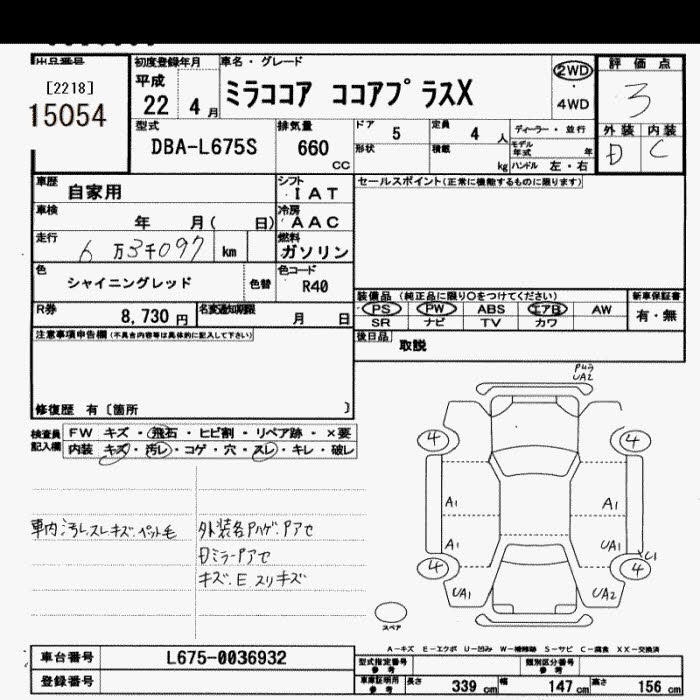 出品番号
[2218]
15054
初度登録年月
平成
22 4 月
車名・グレード
ミラココア ココアプラスX
2WD
4WD
評価点
3
外装 内装
D C
型式
DBA-L675S
排気量
660 CC
ドア 5
定員 4 人
形状
積載 kg
ディーラー・並行
モデル年式 年
ハンドル 左・右
車歴 自家用
シフト
IAT
セールスポイント(正常に機能するものに限ります)
車検 年 月( 日)
冷房
AAC
走行 6万3千097 km
燃料
ガソリン
色 シャイニングレッド
色替
色コード
R40
装備品 (純正品に限り○をつけてください)
新車保証書
PS PW ABS エアB AW
有・無
SR ナビ TV カワ
R券 8,730 円
名変通知期限 月 日
後日品 取説
注意事項申告欄(不具合内容等は具体的に記入して下さい)
修復歴 有〔箇所 〕
検査員記入欄
FW キズ・飛石・ヒビ割・リペア跡・×要
内装 キズ・汚レ・コゲ・穴・スレ・キレ・破レ
UA2
4 4
A1 A1
A1 UA1
U1
4 4
UA1 UA2
スペア
車内汚レスレキズ.ペット毛
外装各Pハゲ.Pアセ
DミラーPアセ
キズ.E スリキズ
A-キズ E-エクボ U-凹み W-補修跡 S-サビ C-腐食 XX-交換済
車台番号 L675-0036932
型式指定番号
参考
類別区分番号
参考
登録番号
車庫証明用
参考
長さ 339 cm
幅 147 cm
高さ 156 cm